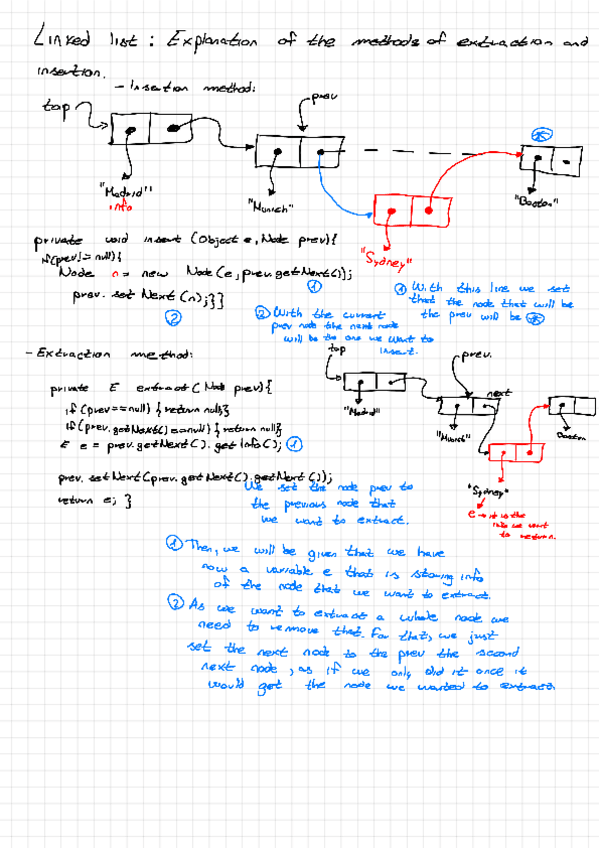 Linked list : Explanation of the methods of extraction and
insertion.
- Insertion method:
top
prev
"Madrid"
info
"Munich"
"Boston"
"Sydney"
private void insert (Object e, Node prev){
if(prev!= null){
Node n = new Node(e, prev.getNext());
prev. set Next (n);}}
① With this line we set
that the node that will be
the prev will be
② With the current
prev node the next node
will be the one we want to
insert.
- Extraction method:
top
prev.
next
"Madrid"
"Munich"
Boston
"Sydney"
e → it is the
info we want
to return.
private E extract ( Node prev){
if (prev==null) { return null;}
if(prev.getNext()==null) { return null}
E e = prev.getNext().getInfo(); ①
prev.setNext(prev.getNext().getNext());
return e; }
We set the node prev to
the previous node that
we want to extract.
① Then, we will be given that we have
now a variable e that is storing info
of the node that we want to extract.
② As we want to extract a whole node we
need to remove that. For that, we just
set the next node to the prev the second
next node, as if we only did it once it
would get the node we wanted to extract